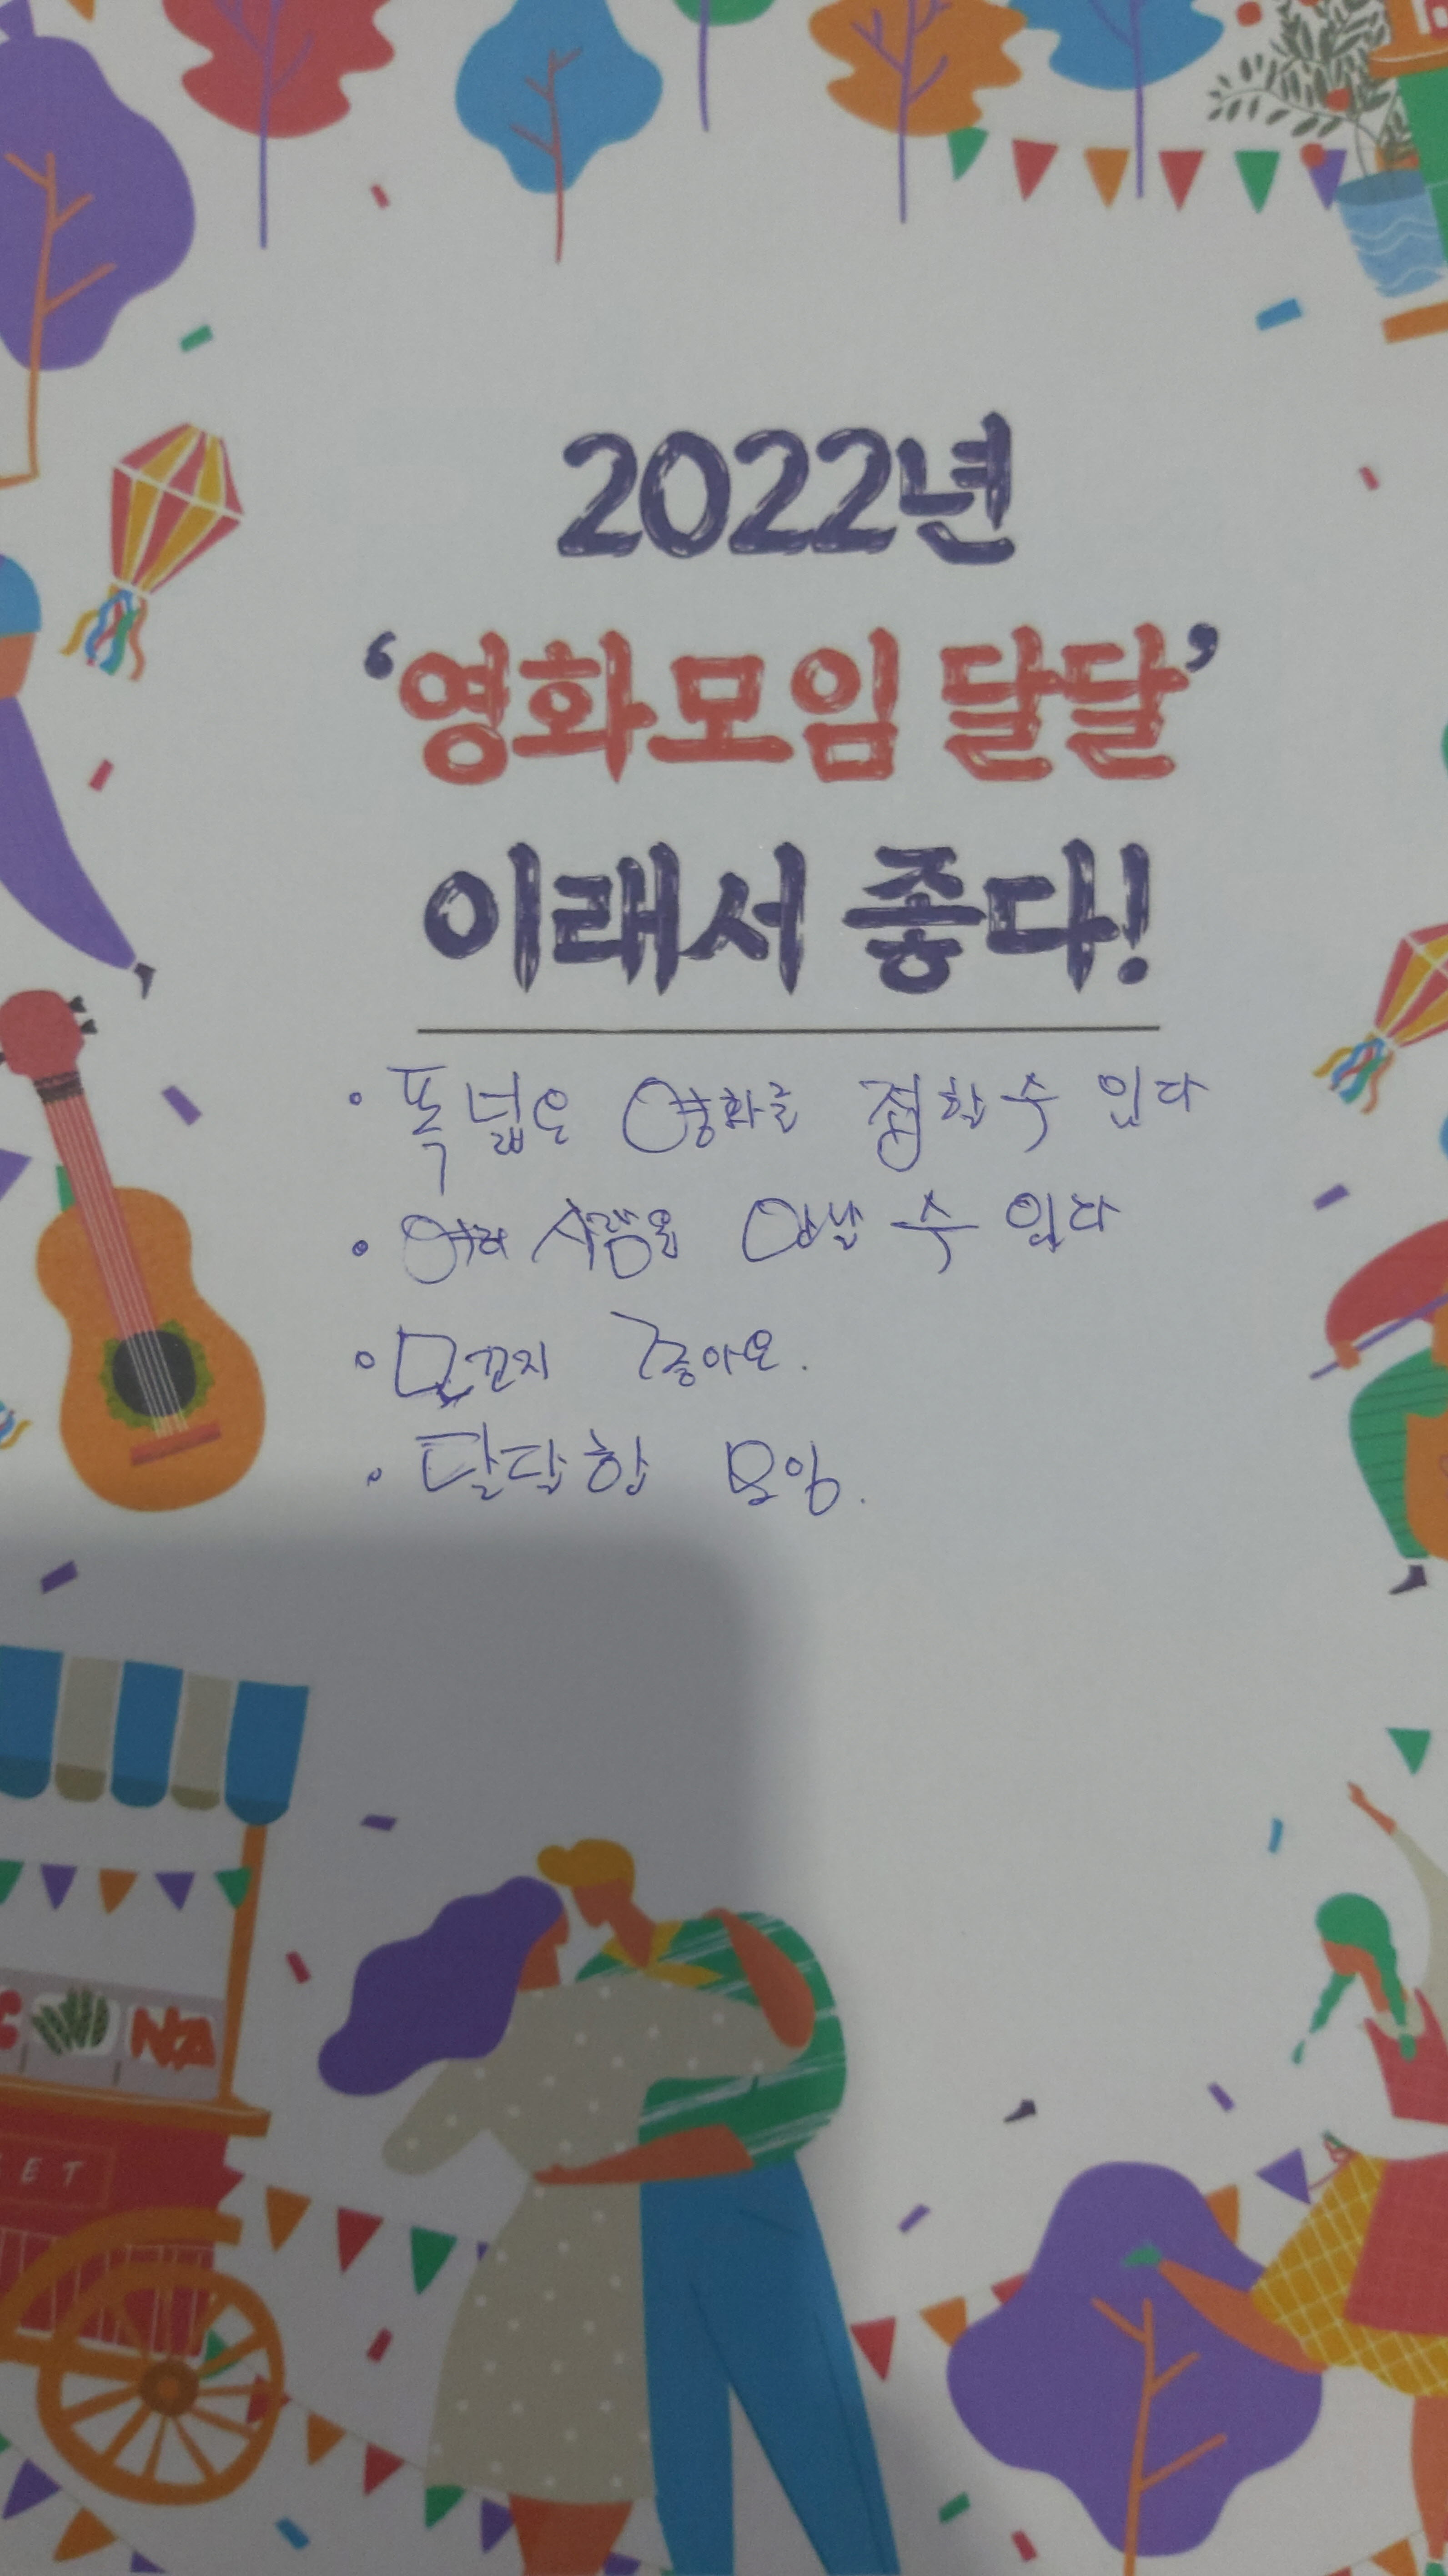 2022년
‘영화모임 달달’
이래서 좋다!
· 폭 넓은 영화를 접할 수 있다
· 여러 사람을 만날 수 있다
· 먼지 좋아요.
· 달달한 모임.
NA
ET